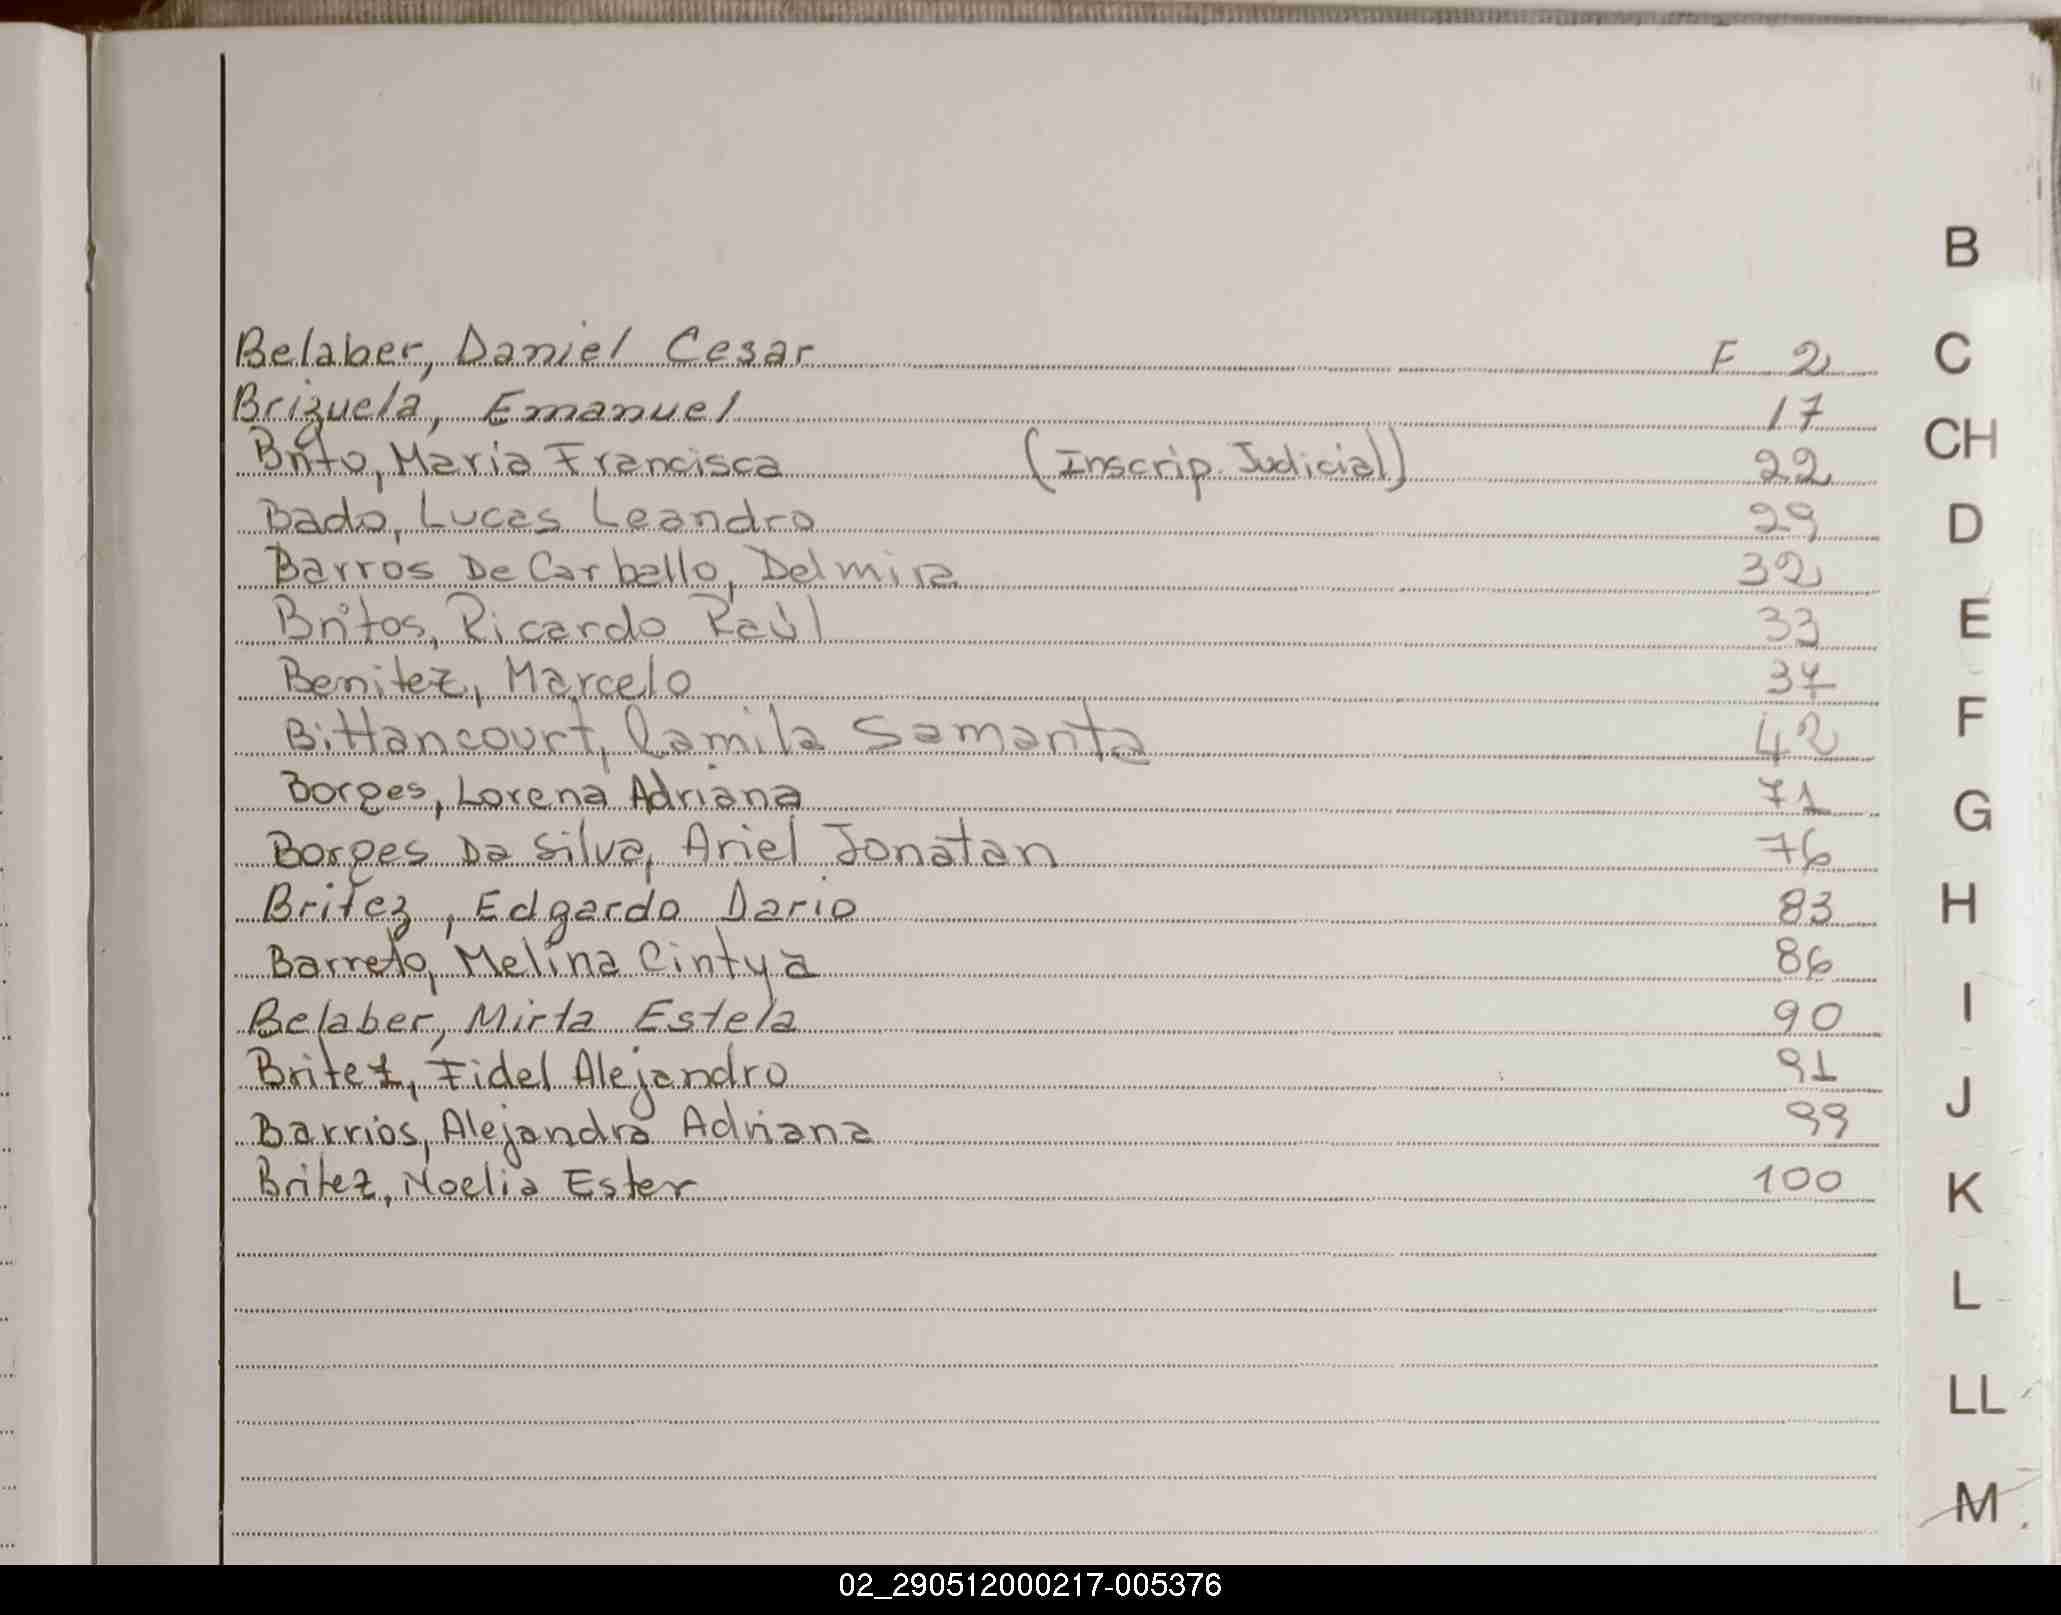 B
Belaber, Daniel Cesar F 2
C
Brizuela, Emanuel 17
CH
Brito, Maria Francisca (Inscrip. Judicial) 22
Bado, Lucas Leandro 29
D
Barros De Carballo, Delmira 32
Britos, Ricardo Raúl 33
E
Benitez, Marcelo 37
Bittancourt, Camila Samanta 42
F
Borges, Lorena Adriana 71
G
Borges Da Silva, Ariel Jonatan 76
Britez, Edgardo Dario 83
H
Barreto, Melina Cintya 86
Belaber, Mirta Estela 90
I
Britez, Fidel Alejandro 91
J
Barrios, Alejandra Adriana 99
Britez, Noelia Ester 100
K
L
LL
M
02_290512000217-005376